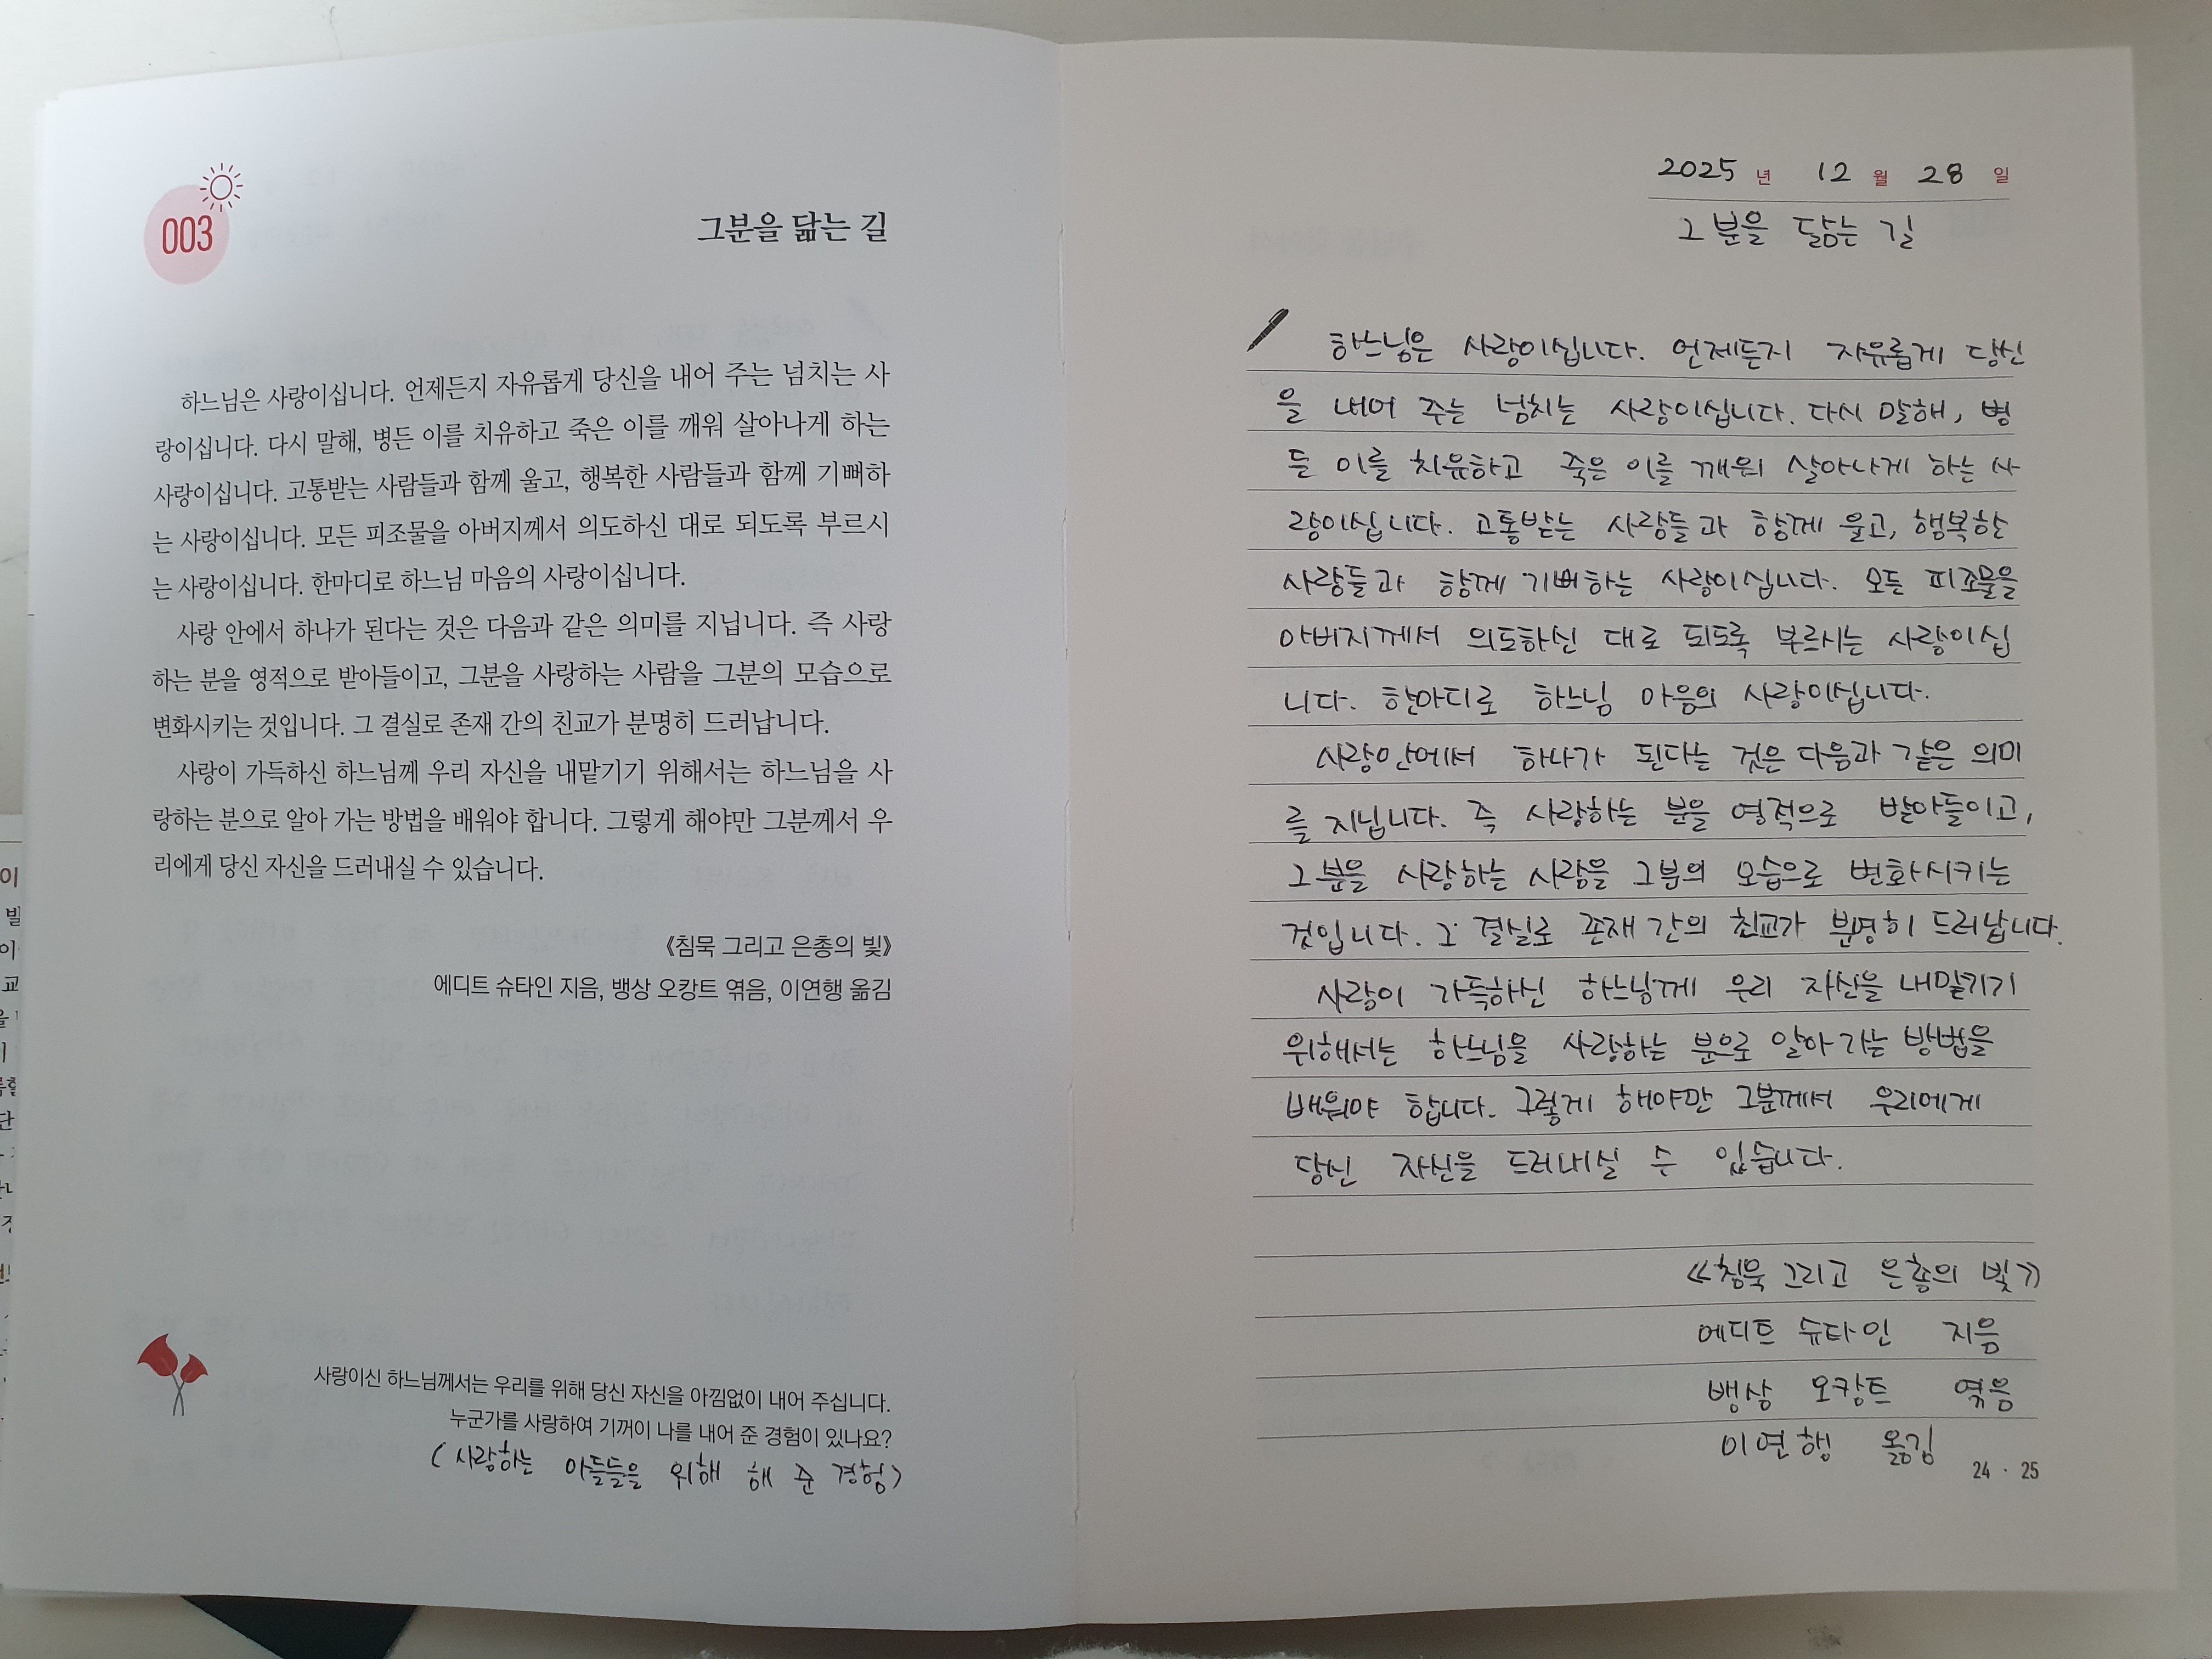 003
그분을 닮는 길
하느님은 사랑이십니다. 언제든지 자유롭게 당신을 내어 주는 넘치는 사
랑이십니다. 다시 말해, 병든 이를 치유하고 죽은 이를 깨워 살아나게 하는
사랑이십니다. 고통받는 사람들과 함께 울고, 행복한 사람들과 함께 기뻐하
는 사랑이십니다. 모든 피조물을 아버지께서 의도하신 대로 되도록 부르시
는 사랑이십니다. 한마디로 하느님 마음의 사랑이십니다.
사랑 안에서 하나가 된다는 것은 다음과 같은 의미를 지닙니다. 즉 사랑
하는 분을 영적으로 받아들이고, 그분을 사랑하는 사람을 그분의 모습으로
변화시키는 것입니다. 그 결실로 존재 간의 친교가 분명히 드러납니다.
사랑이 가득하신 하느님께 우리 자신을 내맡기기 위해서는 하느님을 사
랑하는 분으로 알아 가는 방법을 배워야 합니다. 그렇게 해야만 그분께서 우
리에게 당신 자신을 드러내실 수 있습니다.
《침묵 그리고 은총의 빛》
에디트 슈타인 지음, 뱅상 오캉트 엮음, 이연행 옮김
사랑이신 하느님께서는 우리를 위해 당신 자신을 아낌없이 내어 주십니다.
누군가를 사랑하여 기꺼이 나를 내어 준 경험이 있나요?
(사랑하는 아들들을 위해 해 준 경험)
2025 년 12 월 28 일
그분을 닮는 길
하느님은 사랑이십니다. 언제든지 자유롭게 당신
을 내어 주는 넘치는 사랑이십니다. 다시 말해, 병
든 이를 치유하고 죽은 이를 깨워 살아나게 하는 사
랑이십니다. 고통받는 사람들과 함께 울고, 행복한
사람들과 함께 기뻐하는 사랑이십니다. 모든 피조물을
아버지께서 의도하신 대로 되도록 부르시는 사랑이십
니다. 한마디로 하느님 마음의 사랑이십니다.
사랑안에서 하나가 된다는 것은 다음과 같은 의미
를 지닙니다. 즉 사랑하는 분을 영적으로 받아들이고,
그분을 사랑하는 사람을 그분의 모습으로 변화시키는
것입니다. 그 결실로 존재 간의 친교가 분명히 드러납니다.
사랑이 가득하신 하느님께 우리 자신을 내맡기기
위해서는 하느님을 사랑하는 분으로 알아 가는 방법을
배워야 합니다. 그렇게 해야만 그분께서 우리에게
당신 자신을 드러내실 수 있습니다.
《침묵 그리고 은총의 빛》
에디트 슈타인 지음
뱅상 오캉트 엮음
이연행 옮김
24 · 25